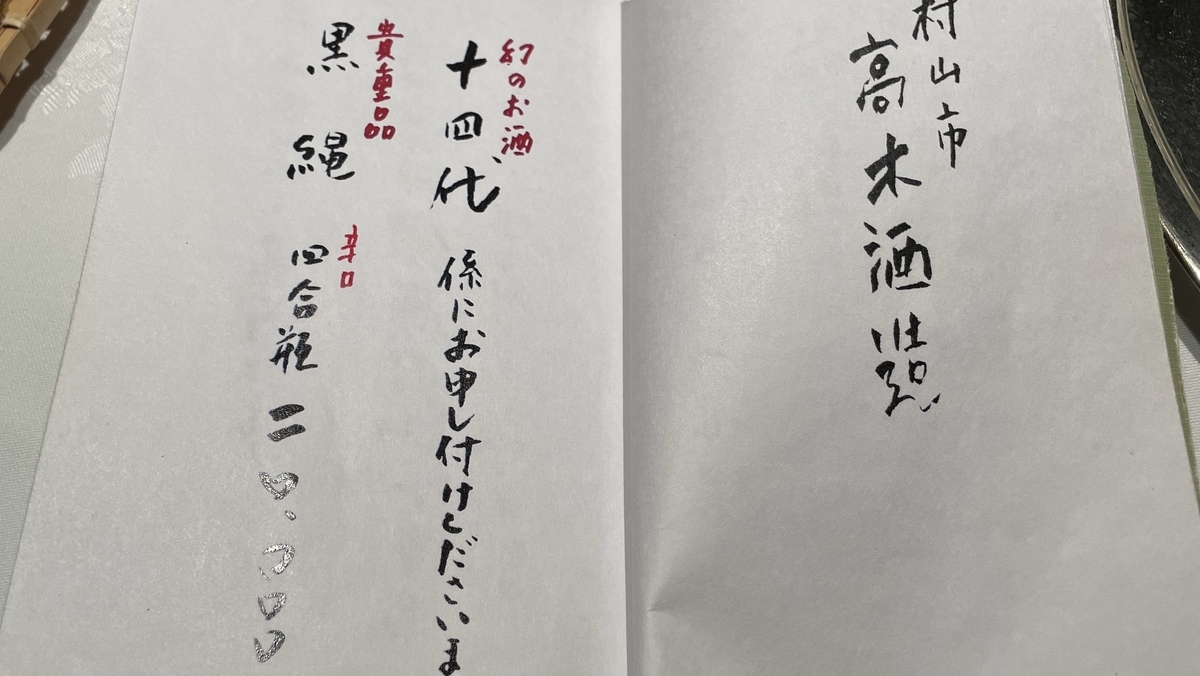 村山市
高木酒造
幻のお酒
十四代 係にお申し付けくださいま
貴重品
黒縄 四合瓶 二〇、〇〇〇
辛口